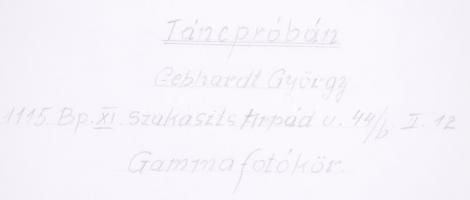 Táncpróbán
Gebhardt György
1115 Bp. XI. Szakasits Árpád u. 44/b. II. 12
Gamma fotókör.